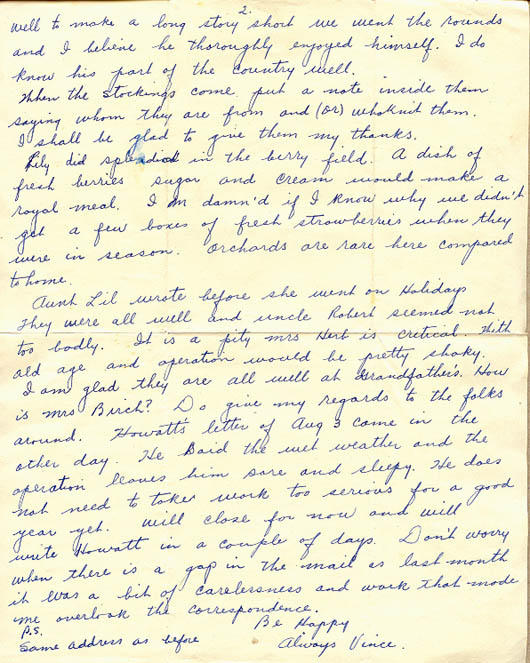 2.
well to make a long story short we went the rounds
and I believe he thoroughly enjoyed himself. I do
know his part of the country well.
When the stockings come put a note inside them
saying whom they are from and (or) who knit them.
I shall be glad to give them my thanks.
Lily did splendid in the berry field. A dish of
fresh berries sugar and cream would make a
royal meal. I'm damn'd if I know why we didn't
get a few boxes of fresh strawberries when they
were in season. Orchards are rare here compared
to home.
Aunt Lil wrote before she went on Holidays
They were all well and uncle Robert seemed not
too badly. It is a pity Mrs Hert is critical. With
old age and operation would be pretty shaky.
I am glad they are all well at Grandfather's. How
is Mrs Birch? Do give my regards to the folks
around. Howatt's letter of Aug 3 came in the
other day He said the wet weather and the
operation leaves him sore and sleepy. He does
not need to take work too serious for a good
year yet. Will close for now and will
write Howatt in a couple of days. Don't worry
when there is a gap in the mail as last month
it was a bit of carelessness and work that made
me overlook the correspondence.
Be Happy
Always Vince.
P.S.
Same address as before